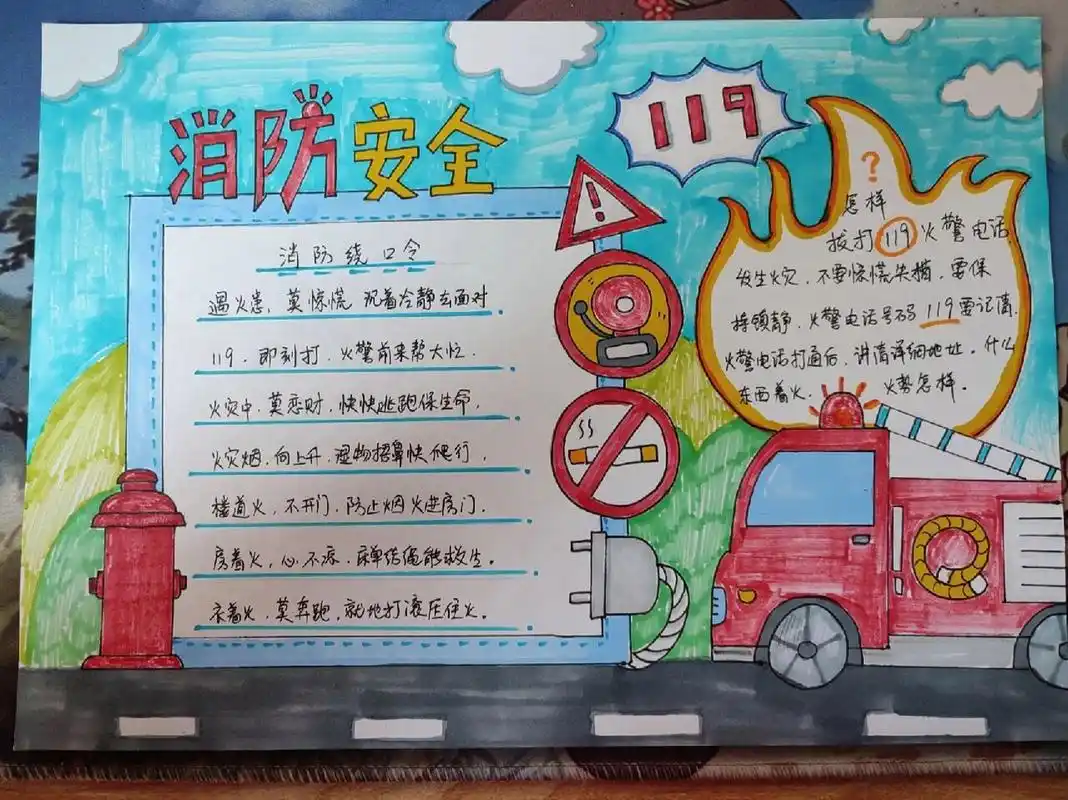 消防安全
119
消防绕口令
遇火患，莫惊慌，沉着冷静去面对
119，即刻打，火警前来帮大忙．
火灾中，莫恋财，快快逃跑保生命．
火灾烟，向上升，湿物捂鼻快爬行，
楼道火，不开门，防止烟火进房门．
房着火，心不慌．床单结绳能救生。
衣着火，莫奔跑，就地打滚压住火。
?
怎样
拔打119火警电话
发生火灾，不要惊慌失措，要保
持镇静．火警电话号码119要记清．
火警电话打通后，讲清详细地址．什么
东西着火．火势怎样．